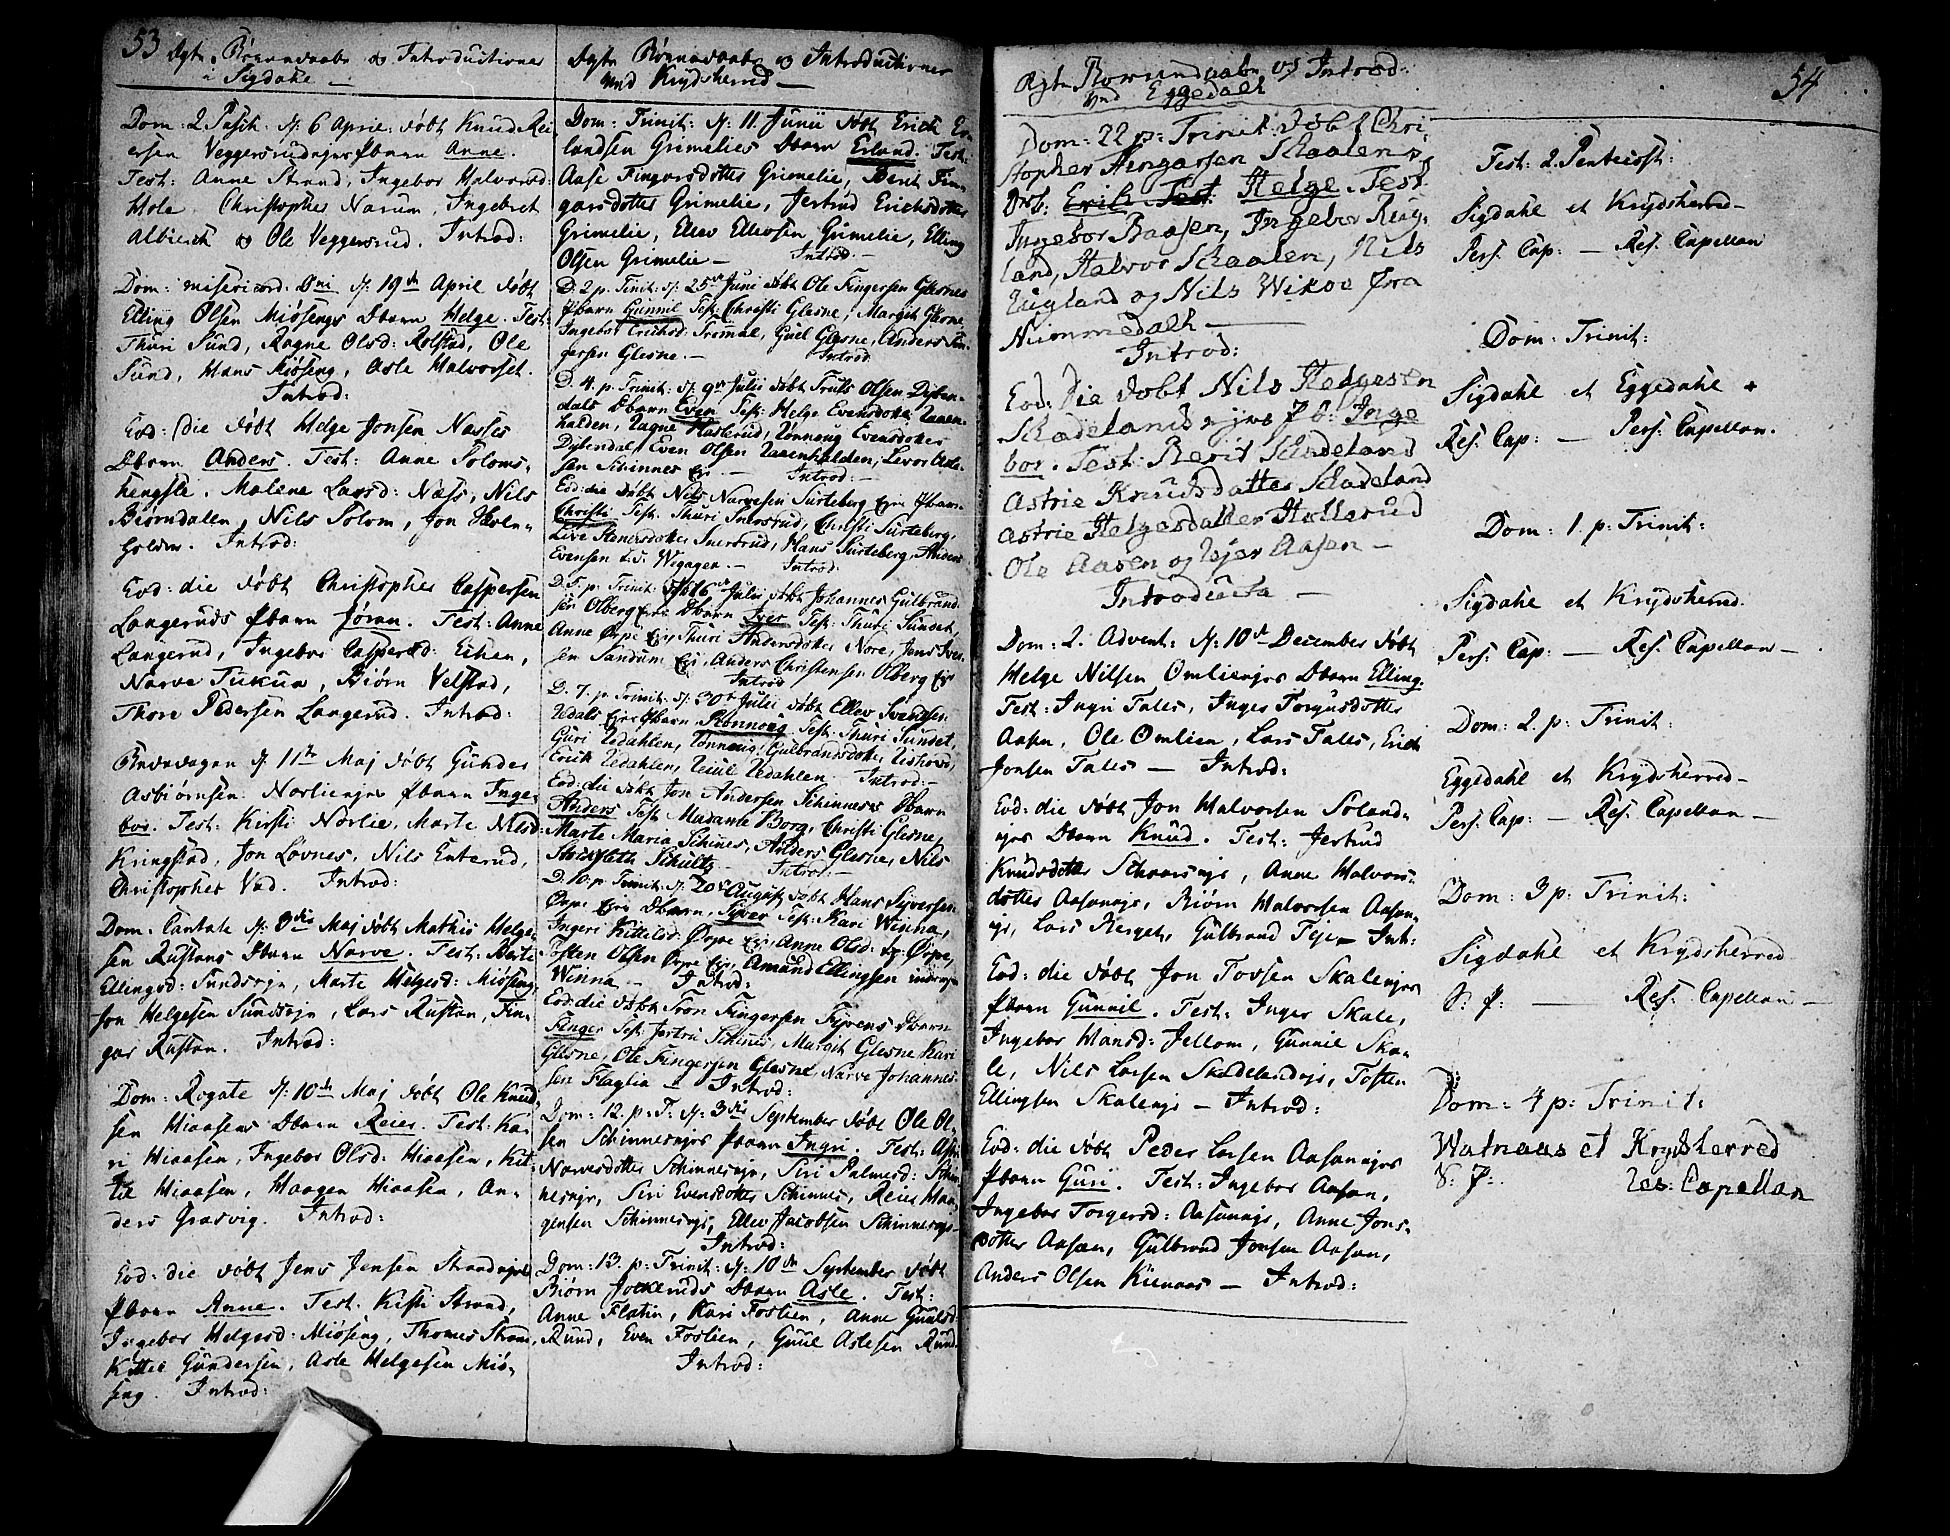 53 Ægte Børnedaabe og Introductioner
i Sigdahl —
Dom: 2 Pasch: d: 6 April: døbt Knud Rei-
ersen Veggersrudejes Pbarn Anne.
Test: Anne Strand, Ingebor Halvorsd:
Hole, Christopher Narum, Ingebret
Albiersch og Ole Veggersrud. Introd:
Dom: misericord: Dni d: 19de April døbt
Elling Olsen Miøsengs Dbarn Helge. Test:
Thuri Sund, Ragne Olsd: Rolstad, Ole
Sund, Hans Miøseng, Asle Halvorset.
Introd:
Eod: die døbt Helge Jonsen Næsses
Dbarn Anders. Test: Anne Soloms-
hengsle, Malene Larsd: Næss, Nils
Biørndalen, Nils Solom, Jon
Introd:
Eod: die døbt Christopher Caspersen
Langeruds Pbarn Jøran. Test: Anne
Langerud, Ingebor Caspersd: Eken,
Narve Tukua, Biørn Velstad,
Thore Pedersen Langerud. Introd:
Bededagen d: 11te Maj døbt Gunder
Asbiørnsen Norliesejes Pbarn Inge-
bor. Test: Kirsti Norlie, Marte Nilsd:
Kringstad, Jon Lovnes, Nils Enterud,
Christopher Vad. Introd:
Dom: Cantate d: 3die Maj døbt Mathis Helge-
sen Rustans Dbarn Narve. Test: Berte
Ellingsd: Sundseje, Marte Helgesd: Miøseng,
Jon Helgesen Sundseje, Lars Rustan, Fin-
gar Rustan. Introd:
Dom: Rogate d: 10de Maj døbt Ole Knud-
sen Hiaasens Dbarn Reier. Test: Ka-
ri Hiaasen, Ingebor Olsd: Hiaasen, Kit-
til Hiaasen, Haagen Hiaasen, An-
ders Grasvig. Introd:
Eod: die døbt Jens Jensen Strandejes
Pbarn Anne. Test: Kisti Strand,
Ingebor Helgesd: Miøseng, Thomes Strand,
Kittel Gundersen, Asle Helgesen Miø-
seng. Introd:
Ægte Børnedaabe og Introductioner
ved Krydsherred —
Dom: Trinit: d: 11 Junii døbt Erich Er-
landsen Grimelies Dbarn Erland. Test:
Aase Fingarsdotter Grimelie, Berit Fin-
garsdotter Grimelie, Jertrud Erichsdotter
Grimelie, Ellev Ellevsen Grimelie, Elling
Olsen Grimelie — Introd: —
D. 2 p. Trinit: d: 25de Juni døbt Ole Fingersen Glesnes
Pbarn Gunnil Test: Christi Glesne, Margit
Ingebor Erichsd: Guel Glesne, Anders Fin-
gersen Glesne. — Introd:
D. 4. p. Trinit: d: 9de Julii døbt Truls Olsen Dyben-
dals Dbarn Even Test: Helge Evensdotter Raaen-
halden, Ragne Hasterud, Rønnaug Evensdotter
Dybendal, Even Olsen Raaenhalden, Levor Asle-
sen Schinnes Eje. — Introd: —
Eod: die døbt Nils Narvesen Surteberg Ejes Pbarn
Christi Test: Thuri Snersrud, Christi Surteberg,
Live Stenersdotter Snersrud, Hans Surteberg, Anders
Evensen Wigager. — Introd:
D. 5. p: Trinit: d: 16de Julii døbt Johannes Gulbrand-
sen Olberg Ejes Dbarn Iver Test: Thuri Sundet,
Anne Ørpe Eje, Thuri Andersdotter Nore, Jens Iver-
sen Sandum Eje, Anders Christensen Olberg Eje
Introd:
D. 7. p. Trinit: d: 30te Julii døbt Ellev Svendsen
Redals Ejes Pbarn Rønnoug. Test: Thuri Sundet,
Guri Redahlen, Rønnoug Gulbransdotter
Erich Redahlen, Redahlen. Introd: —
Eod: die døbt Jon Andersen Schinneses Dbarn
Anders Test: Madame Borg, Christi Glesne,
Marte Maria Schines, Anders Glesne, Nils
Schultz — Introd: —
D. 10. p. Trinit: d: 20de August døbt Hans Siversen
Ørpe Ejes Dbarn, Syver Test: Kari Winna,
Ingeri Kittilsd: Ørpe Eje, Anne Olsd: Ørpe,
Tosten Olsen Ørpe Eje, Amund Ellingsen
Winna — Introd:
Eod: die døbt Tron Fingersen Dbarn
Finger Test: Jertru Schines, Margit Glesne Kari
Glesne, Ole Fingersen Glesne, Narve Johannes-
sen Flaglia — Introd:
Dom: 12. p: T: d: 3die September døbt Ole Ol-
sen Schinnesejes Pbarn Ingri. Test: Astri
Narvesdotter Schinneseje, Siri Palmesd: Schin-
neseje, Siri Evensdotter Schinnes, Reier Haa-
gensen Schinneseje, Ellev Jacobsen Schinneseje —
Introd:
Dom: 13. p: Trinit: d: 10de September døbt
Biørn Jokeruds Dbarn Asle. Test:
Anne Flatin, Kari Foslien, Anne Guulsd:
Rund, Even Foslien, Guul Aslesen Rund.
Introd:
Ægte Børnedaabe og Introd:
ved Eggedalh
Dom: 22 p: Trinit: døbt Chri-
stopher Hengarsen Skaalens
Drb: Erich Test: Helge. Test:
Ingebor Baasen, Ingebor Rug-
land, Halvor Skaalen, Nils
Rugland og Nils Wikoe fra
Nummedalh —
Introd:
Eod: Die døbt Nils Helgesen
Skadelands ejes P b: Inge-
bor. Test: Berit Skadeland
Astrie Knudsdatter Skadeland
Astrie Helgesdatter Hellerud
Ole Aasen og Rejer Aasen —
Introducta —
Dom: 2. Advent: d: 10de December døbt
Helge Nilsen Omliesejes Dbarn Elling
Test: Ingri Tales, Inger Torgusdotter
Aasen, Ole Omlien, Lars Tales, Erich
Jonsen Tales — Introd:
Eod: die døbt Jon Halvorsen Soland-
ejes Dbarn Knud. Test: Jertrud
Knudsdotter Schaarseje, Anne Halvors-
dotter Aasaneje, Biørn Halvorsen Aasan-
eje, Lars Herget, Gulbrand Teje — Int:
Eod: die døbt Jon Tovsen Skalenejes
Pbarn Gunnil. Test: Inger Skale,
Ingebor Hansd: Jellom, Gunnil Ska-
le, Nils Larsen Skadelandeje, Tosten
Ellingsen Skaleeje — Introd:
Eod: die døbt Peder Larsen Aasanejes
Pbarn Guri. Test: Ingebor Aasan,
Ingebor Torgersd: Aasaneje, Anne Jons-
dotter Aasan, Gulbrand Jonsen Aasan,
Anders Olsen Kienaas — Introd:
54
Test: 2. Pentecost:
Sigdahl et Krydsherred —
Pers. Cap: — Res. Capellan
Dom: Trinit:
Sigdahl et Eggedahl +
Res. Cap: — Pers. Capellan.
Dom: 1. p: Trinit:
Sigdahl et Krydsherred.
Pers. Cap: — Res. Capellan —
Dom: 2. p: Trinit:
Eggedahl et Krydsherred —
Pers. Cap: — Res. Capellan —
Dom: 3 p: Trinit:
Sigdahl et Krydsherred
S: P: — Res. Capellan —
Dom: 4 p: Trinit:
Watnaas et Krydsherred
S: P: Res: Capellan